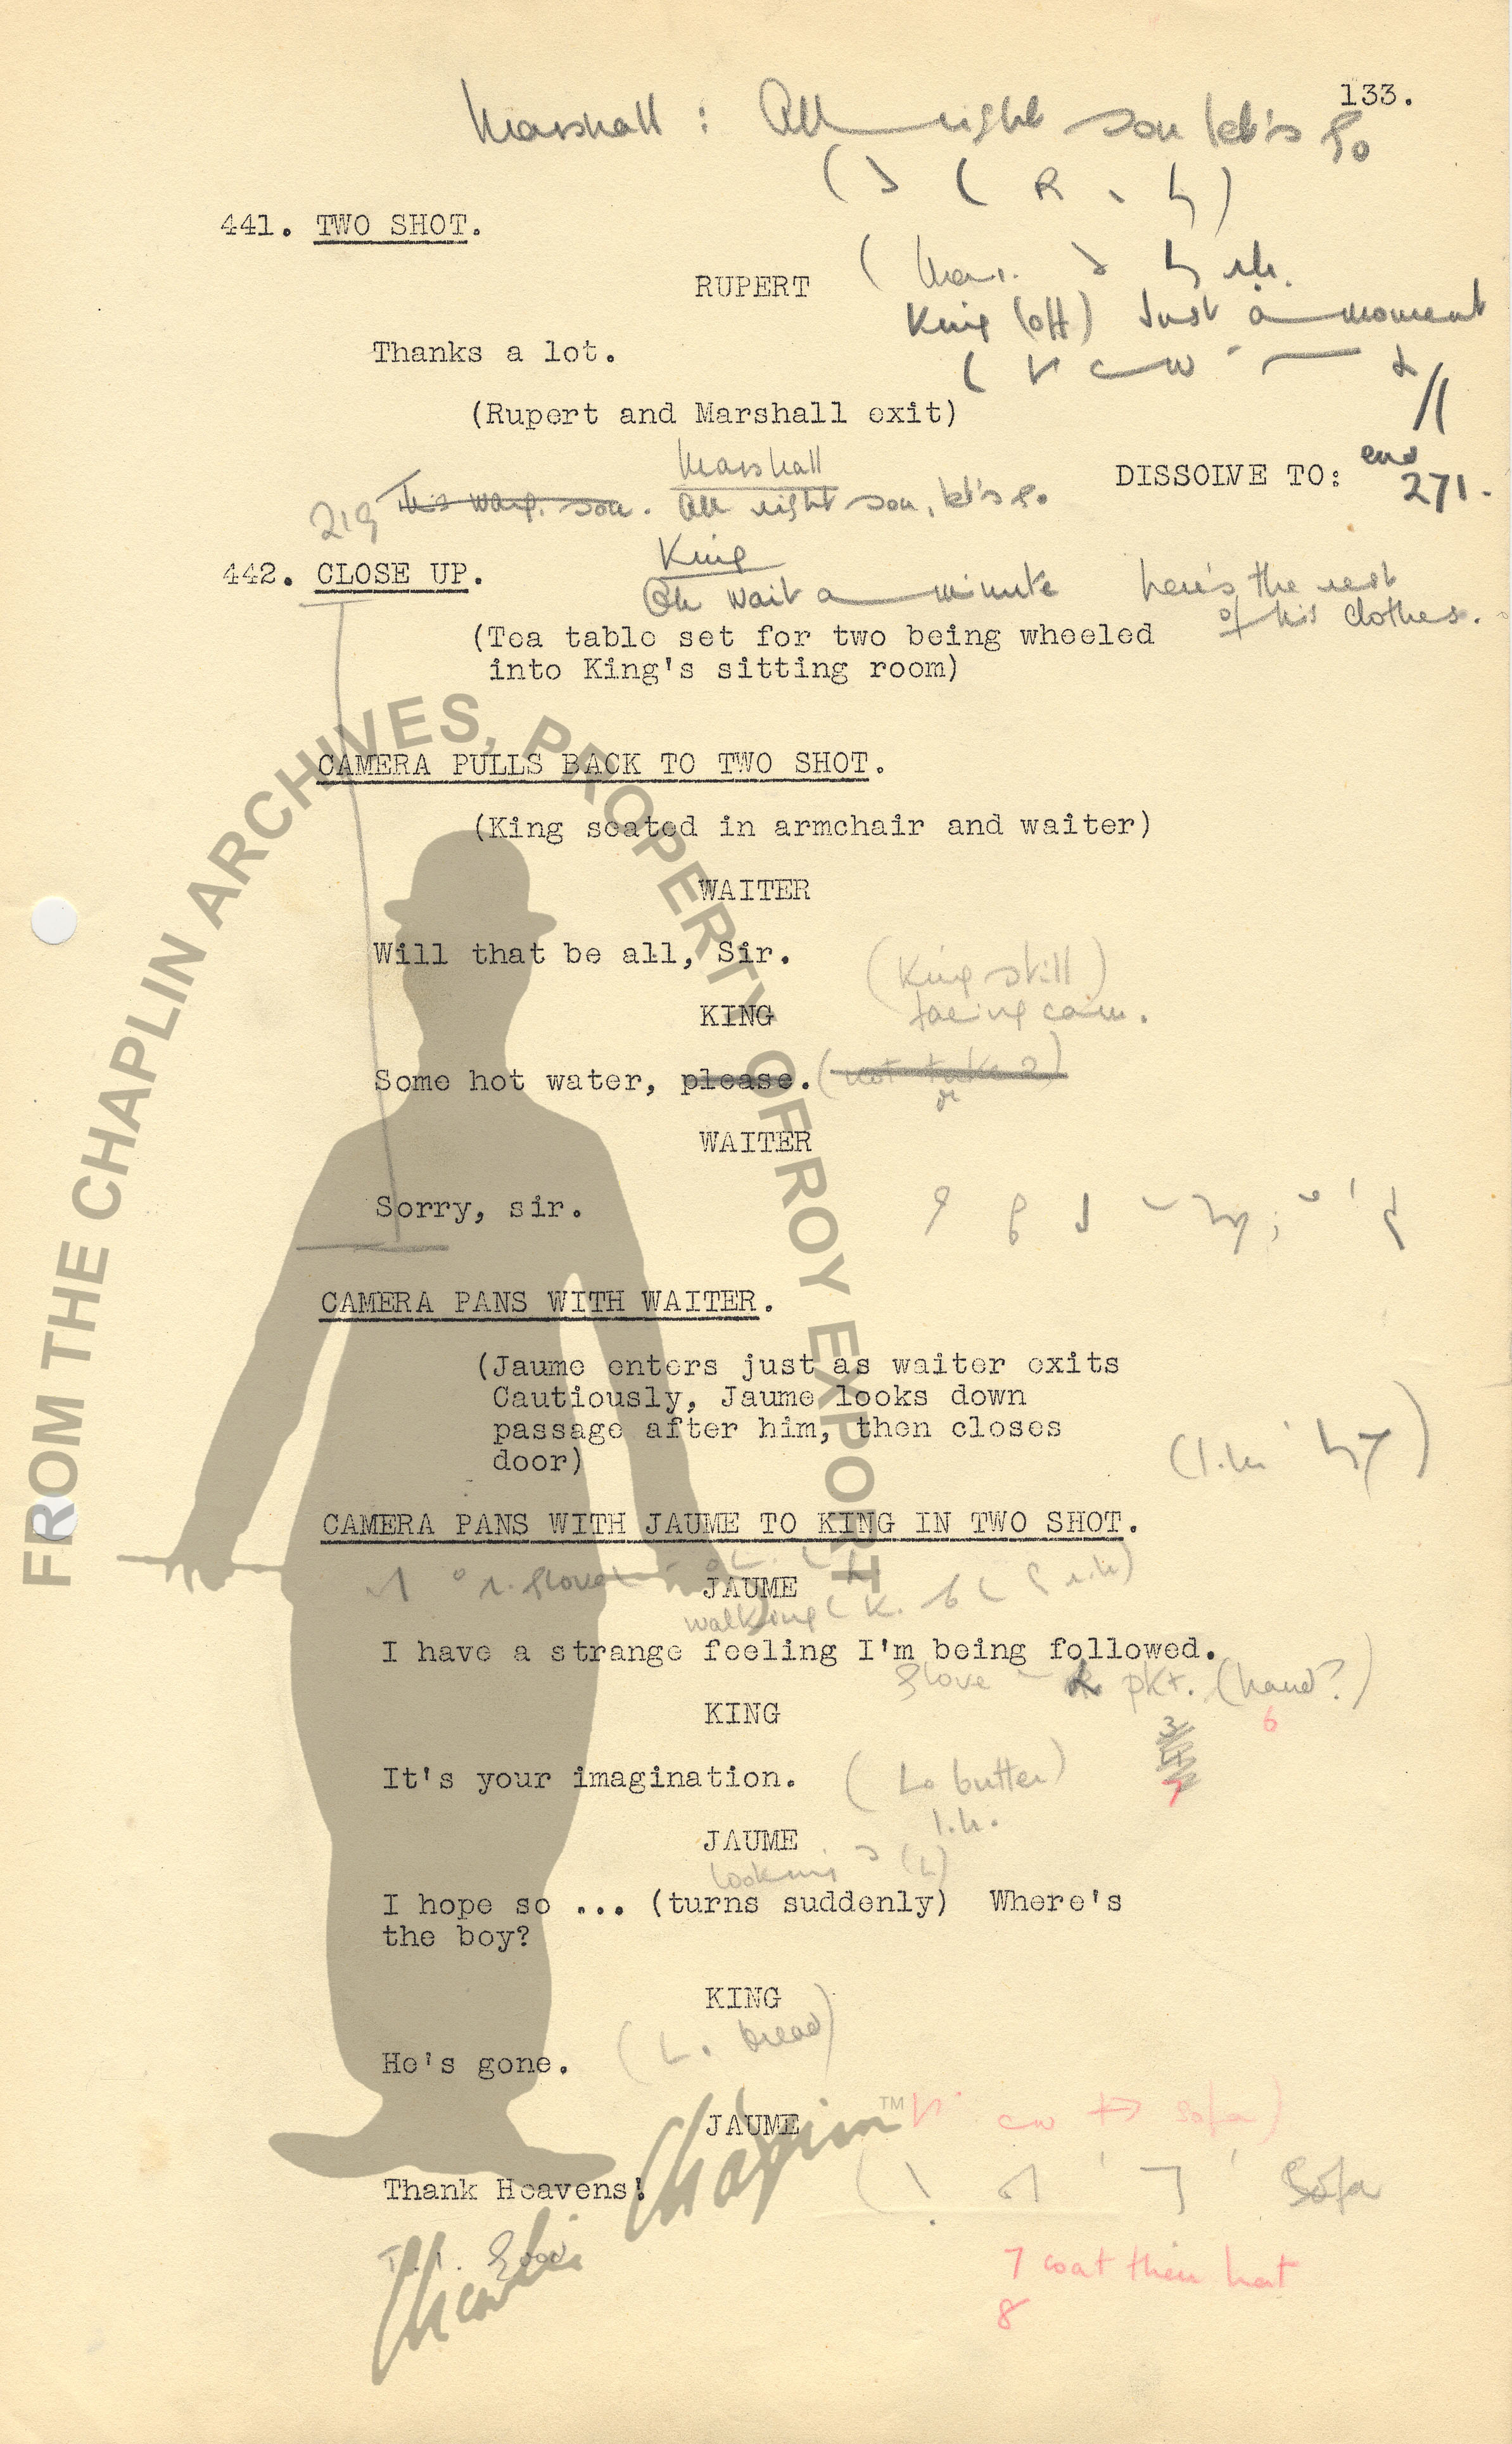 133.
Marshall : All right son let's go
441. TWO SHOT.
RUPERT
King (off) Just a moment
Thanks a lot.
(Rupert and Marshall exit)
Marshall
DISSOLVE TO:
end
271.
219 This way, son. All right son, let's go.
King
442. CLOSE UP.
Oh wait a minute here's the rest
of his clothes.
(Tea table set for two being wheeled
into King's sitting room)
CAMERA PULLS BACK TO TWO SHOT.
(King seated in armchair and waiter)
WAITER
Will that be all, Sir.
(King still)
KING
facing cam.
Some hot water, please.
WAITER
Sorry, sir.
CAMERA PANS WITH WAITER.
(Jaume enters just as waiter exits
Cautiously, Jaume looks down
passage after him, then closes
door)
CAMERA PANS WITH JAUME TO KING IN TWO SHOT.
JAUME
walking
I have a strange feeling I'm being followed.
glove pkt. (hand?)
6
KING
3
4
7
It's your imagination. (L. butter)
l.h.
JAUME
looking (L)
I hope so ... (turns suddenly) Where's
the boy?
KING
(L. bread)
He's gone.
JAUME
sofa)
Thank Heavens!
Sofa
good
7 coat then hat
8
FROM THE CHAPLIN ARCHIVES, PROPERTY OF ROY EXPORT
Charlie Chaplin™